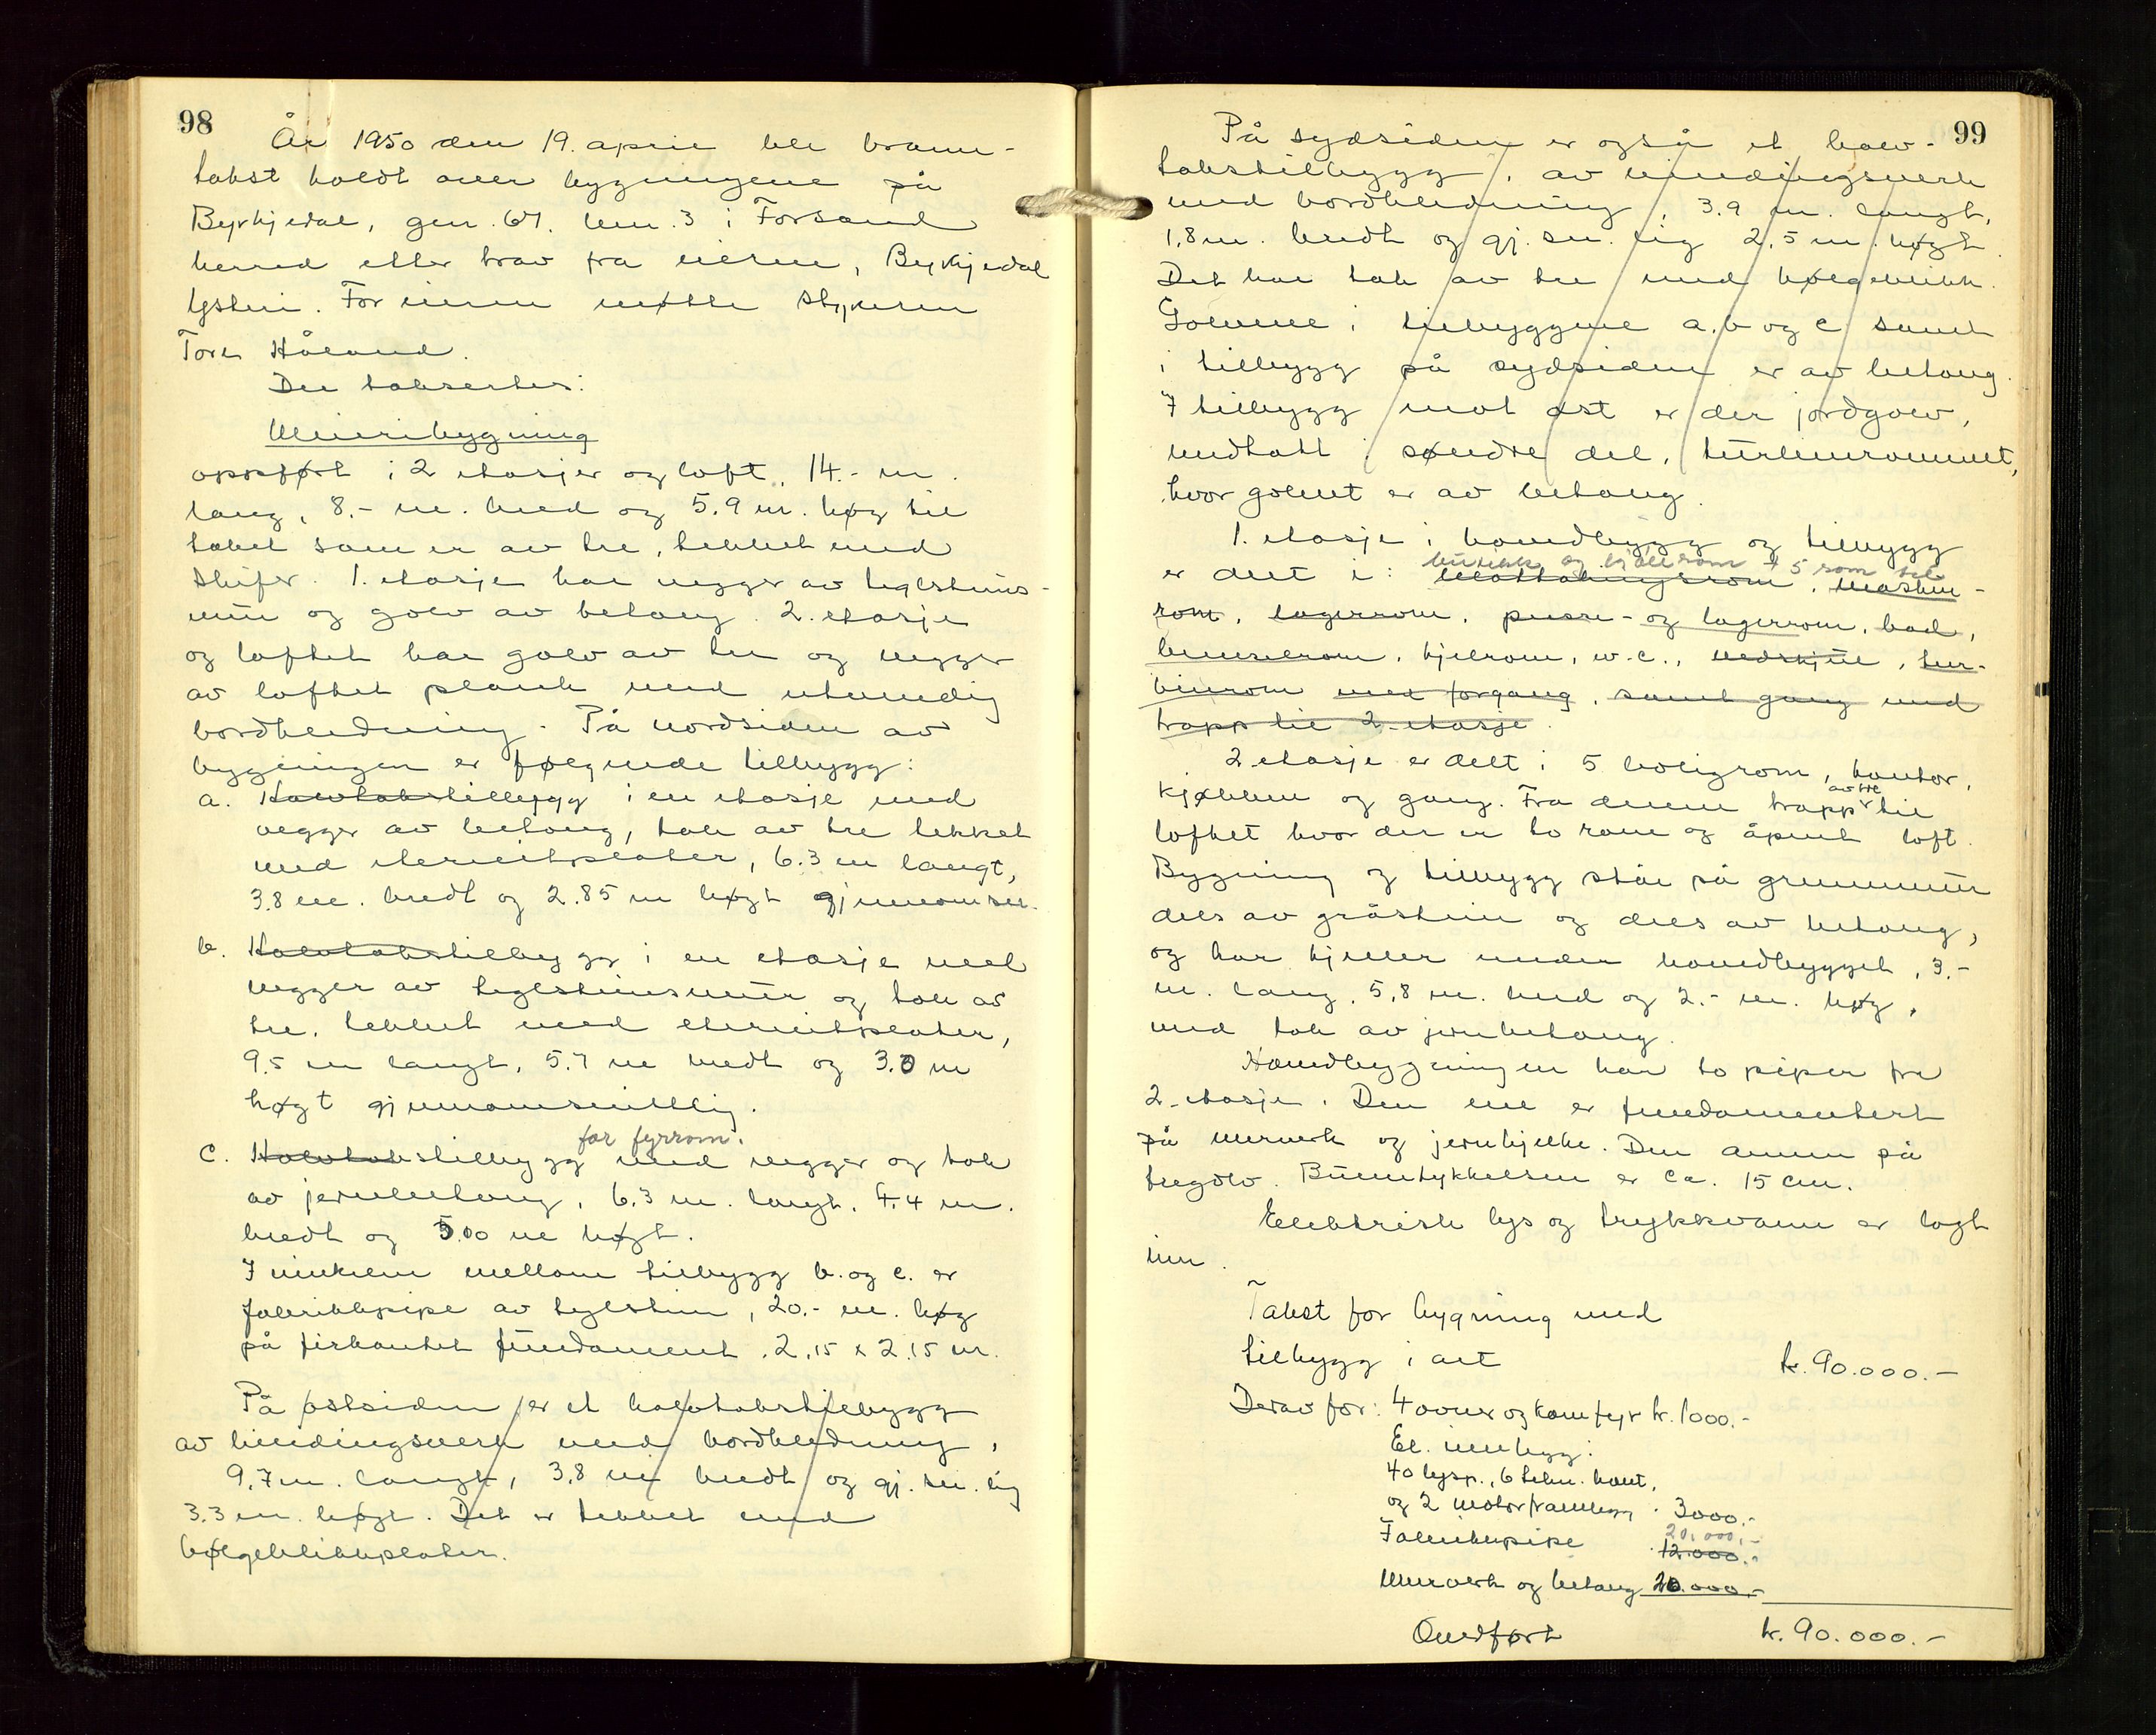 98
År 1950 den 19. april ble brann-
takst holdt over bygningene på
Byrkjedal, gnr. 67. bnr. 3 i Forsand
herred etter krav fra eieren, Byrkjedal
Ysteri. For eieren møtte styreren
Tore Håland.
Der taksertes:
Meieribygning
oppført i 2 etasjer og loft, 14.- m.
lang, 8.- m. bred og 5.9 m. høg til
taket som er av tre, tekket med
skifer. 1. etasje har vegger av teglsteins-
mur og golv av betong. 2. etasje
og loftet har golv av tre og vegger
av loftet plank med utvendig
bordkledning. På nordsiden av
bygningen er følgende tilbygg:
a. Halvtakstilbygg i en etasje med
vegger av betong, tak av tre tekket
med eternitplater, 6.3 m langt,
3.8 m. bredt og 2.85 m høgt gjennomsn.
b. Halvtakstilbygg i en etasje med
vegger av teglsteinsmur og tak av
tre, tekket med eternitplater,
9.5 m langt, 5.7 m bredt og 3.0 m
høgt gjennomsnittlig.
for fyrrom.
c. Halvtakstilbygg med vegger og tak
av jernbetong, 6.3 m. langt, 4.4 m.
bredt og 5.00 m høgt.
I vinkelen mellom tilbygg b. og c. er
fabrikkpipe av teglstein, 20.- m. høg
på firkantet fundament, 2.15 x 2.15 m.
På østsiden er et halvtakstilbygg
av bindingsverk med bordkledning,
9.7 m. langt, 3.8 m bredt og gj. sn. lig
3.3 m. høgt. Det er tekket med
bølgeblikkplater.
99
På sydsiden er også et halv-
takstilbygg, av bindingsverk
med bordkledning, 3.9 m. langt,
1.8 m. bredt og gj. sn. lig 2.5 m. høgt.
Det har tak av tre med bølgeblikk.
Golvene i tilbyggene a, b og c samt
i tilbygg på sydsiden er av betong.
I tilbygg mot øst er der jordgolv,
undtatt i søndre del, turbinrommet,
hvor golvet er av betong.
1. etasje i hovedbygg og tilbygg
butikk og kjølerom + 5 rom til
er delt i: Mottakningsrom, Maskin-
rom, lagerrom, presse- og lagerrom, bad,
brenselrom, kjelrom, w.c., vedskjul, tur-
binrom med forgang, samt gang med
trapp til 2. etasje.
2. etasje er delt i 5 boligrom, kontor,
av tre
kjøkken og gang. Fra denne trapp til
loftet hvor der er to rom og åpent loft.
Bygning og tilbygg står på grunnmur
dels av gråstein og dels av betong,
og har kjeller under hovedbygget, 3.-
m. lang, 5.8 m. bred og 2.- m. høg,
med tak av jernbetong.
Hovedbygningen har to piper fra
2. etasje. Den ene er fundamentert
på murverk og jernbjelke. Den annen på
tregolv. Brunntykkelsen er ca. 15 cm.
Elektrisk lys og trykkvann er lagt
inn.
Takst for bygning med
tilbygg i alt kr. 90.000.-
Derav for: 4 ovner og komfyr kr. 1000.-
El. innlegg:
40 lysp., 6 tekn. kont,
og 2 motorframlegg . 3000.-
20.000.-
Fabrikkpipe . 12.000.-
Murverk og betong 20.000.-
Overført kr. 90.000.-